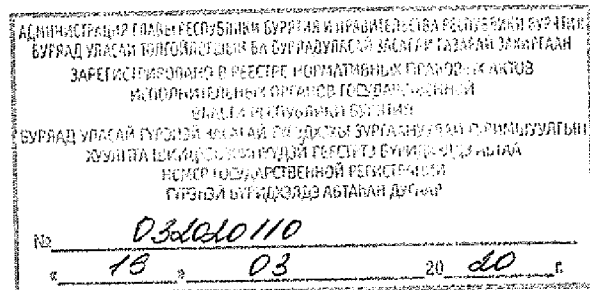 АДМИНИСТРАЦИЯ ГЛАВЫ РЕСПУБЛИКИ БУРЯТИЯ И ПРАВИТЕЛЬСТВА РЕСПУБЛИКИ БУРЯТИЯ
БУРЯАД УЛАСАЙ ЗАСАГАЙ ГАЗАРАЙ ЗАХИРГААН
ЗАРЕГИСТРИРОВАНО В РЕЕСТРЕ НОРМАТИВНЫХ ПРАВОВЫХ АКТОВ
ИСПОЛНИТЕЛЬНЫХ ОРГАНОВ ГОСУДАРСТВЕННОЙ
ВЛАСТИ РЕСПУБЛИКИ БУРЯТИЯ
БУРЯАД УЛАСАЙ ГҮРЭНЭЙ
НОМЕР ГОСУДАРСТВЕННОЙ РЕГИСТРАЦИИ
ГҮРЭНЭЙ БҮРИДХЭЛДЭ АБТАҺАН ДУГААР
№ 032020110
« 18 » 03 20 20 г.